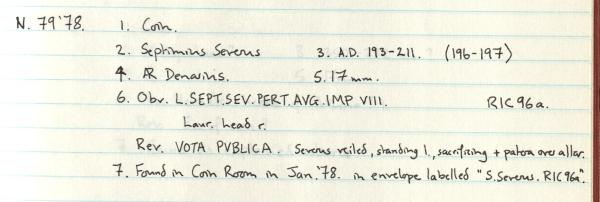 N. 79'78. 1. Coin.
2. Septimius Severus 3. A.D. 193-211. (196-197)
4. AR Denarius. 5. 17 mm.
6. Obv. L.SEPT.SEV.PERT.AVG.IMP VIII. RIC 96a.
Laur. head r.
Rev. VOTA PVBLICA. Severus veiled, standing l, sacrificing + patera over altar.
7. Found in Coin Room in Jan.'78. in envelope labelled "S.Severus. RIC 96a".